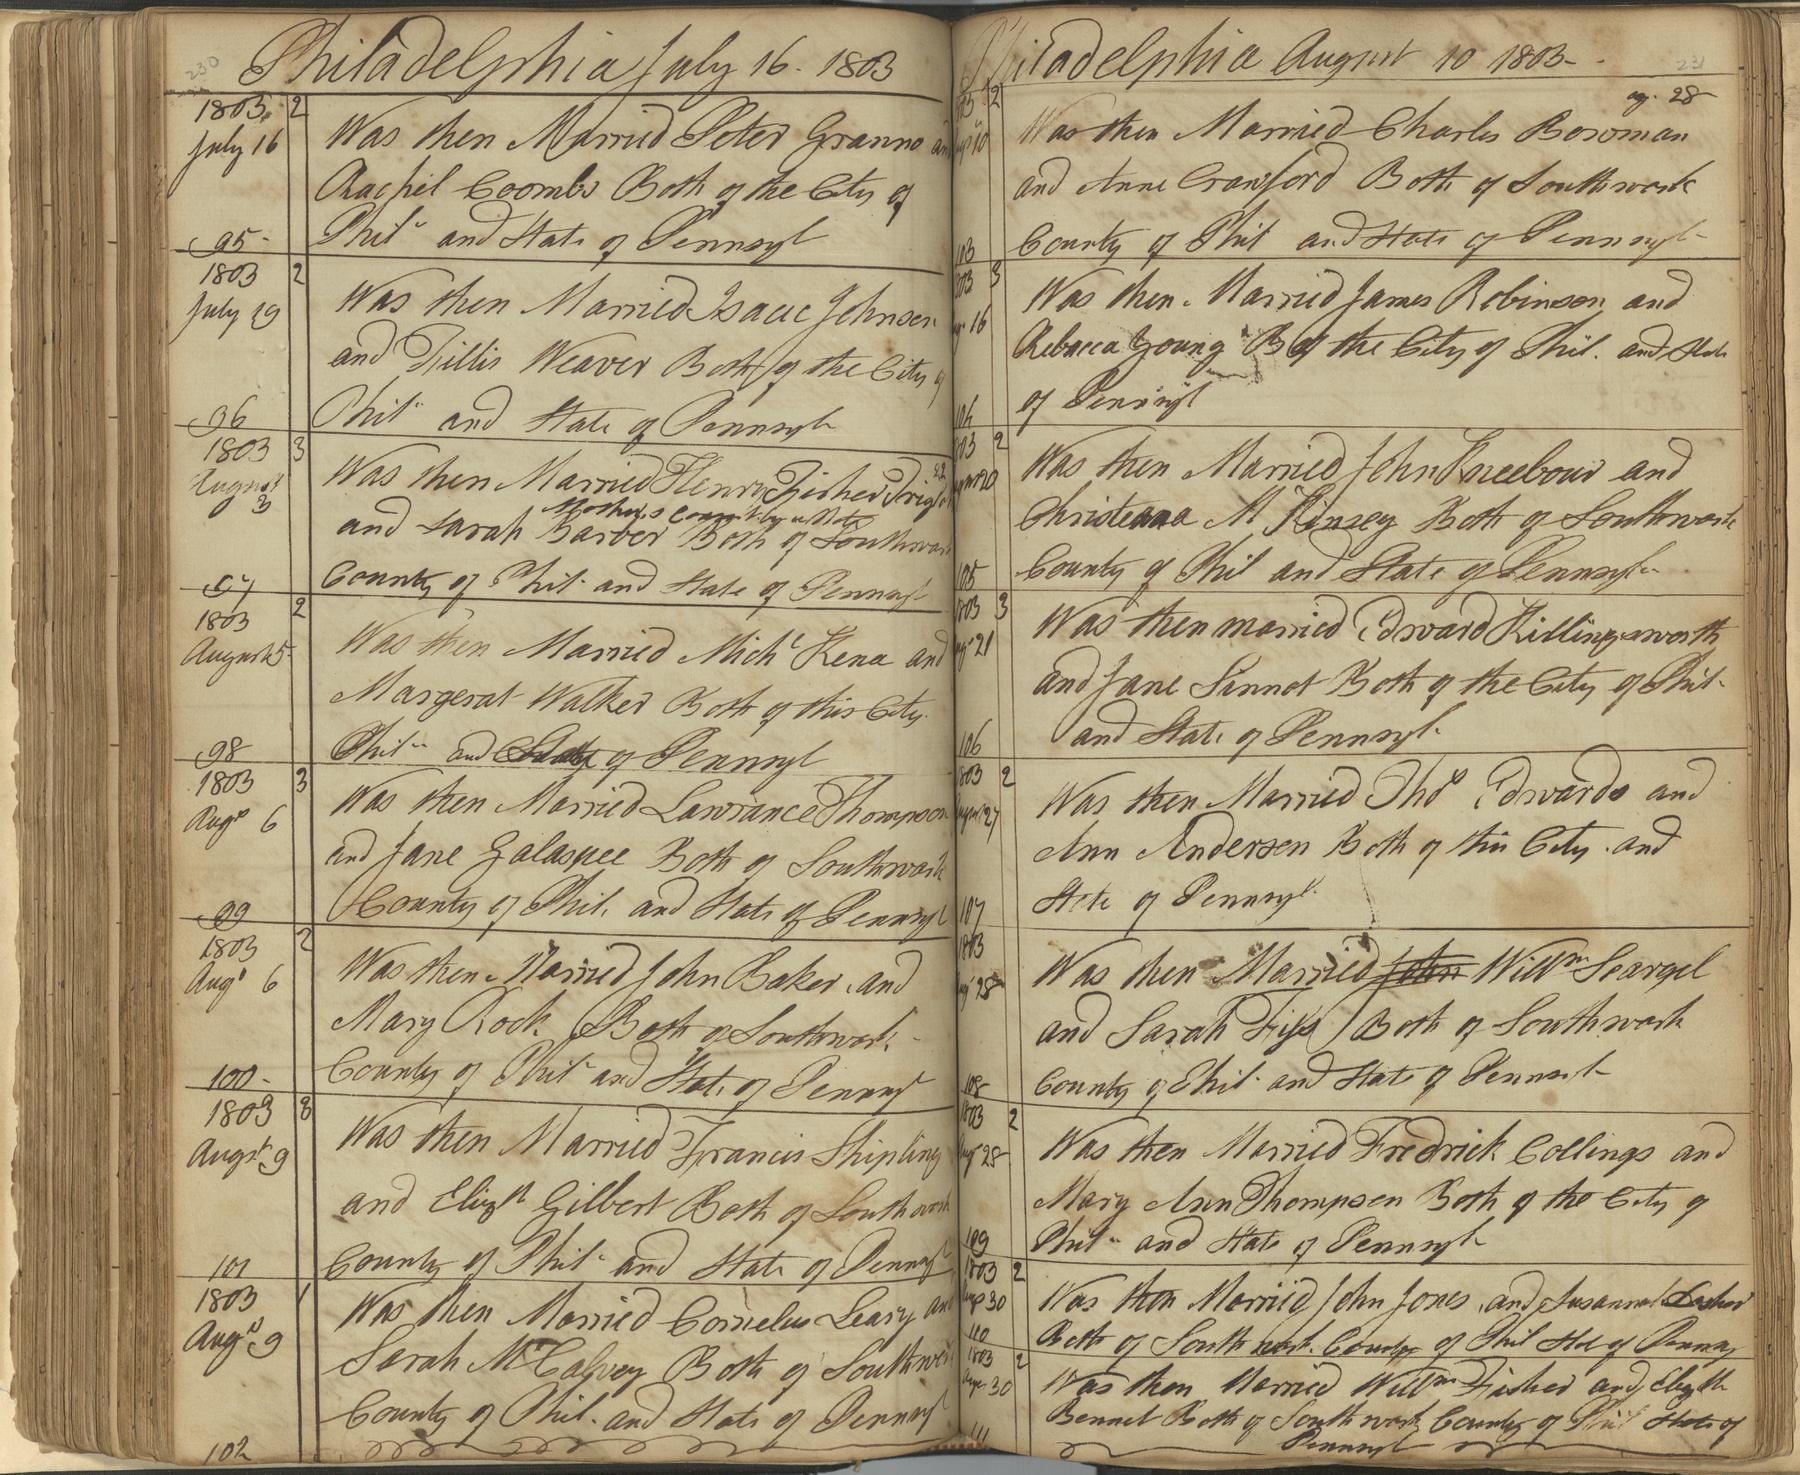 230
Philadelphia July 16. 1803
1803. 2
July 16
Was then Married Peter Granno and
Rachel Coombs Both of the City of
95- Phila and State of Pennsyl
1803 2
July 29
Was then Married Isaac Johnson
and Tillis Weaver Both of the City of
96 Phila and State of Pennsyl
1803 3
August 3
Was then Married Henry Fisher
Mothers Consent by a Note
and Sarah Barber Both of Southwark
97 County of Phil. and State of Pennsyl
1803 2
August 5-
Was then Married Michl Kena and
Margerat Walker Both of this City
98 Phila and State of Pennsyl
1803 3
Augst 6
Was then Married Lawrance Thompson
and Jane Galaspee Both of Southwark
99 County of Phil. and State of Pennsyl
1803 2
Augt 6
Was then Married John Baker and
Mary Rock Both of Southwark
100- County of Phila and State of Pennsyl
1803 3
Augst 9
Was then Married Francis Shipling
and Elizth Gilbert Both of Southwark
101 County of Phila and State of Pennsyl
1803 1
Augst 9
Was then Married Cornelus Leary and
Sarah McCalvey Both of Southwark
County of Phil. and State of Pennsyl
102
231
Philadelphia August 10 1803-
ag. 28
1803 2
Was then Married Charles Bowman
and Anne Crawford Both of Southwark
103 County of Phil and State of Pennsyl
1803 3
16 Was then Married James Robinson and
Rebecca Young B of the City of Phil. and State
104 of Pennsyl
1803 2
20 Was then Married John Kneebour and
Christeana McKinsey Both of Southwark
105 County of Phil and State of Pennsyl
1803 3
21 Was then married Edward Killingsworth
and Jane Sinnot Both of the City of Phil.
106 and State of Pennsyl.
1803 2
August 27 Was then Married Thos Edwards and
Ann Andersen Both of this City and
107 State of Pennsyl
1803
28 Was then Married John Willm Seargel
and Sarah Both of Southwark
108 County of Phil. and State of Pennsyl
1803 2
Augt 28 Was then Married Fredrick Collings and
Mary Ann Thompsen Both of the City of
109 Phila and State of Pennsyl
1803 2
30 Was then Married John Jones and Susannah
110 Both of Southwark County of Phil State of Pennsy
1803 2
30 Was then Married Willm Fisher and Elizth
Bennet Both of Southwark County of Phil State of
111 Pennsyl